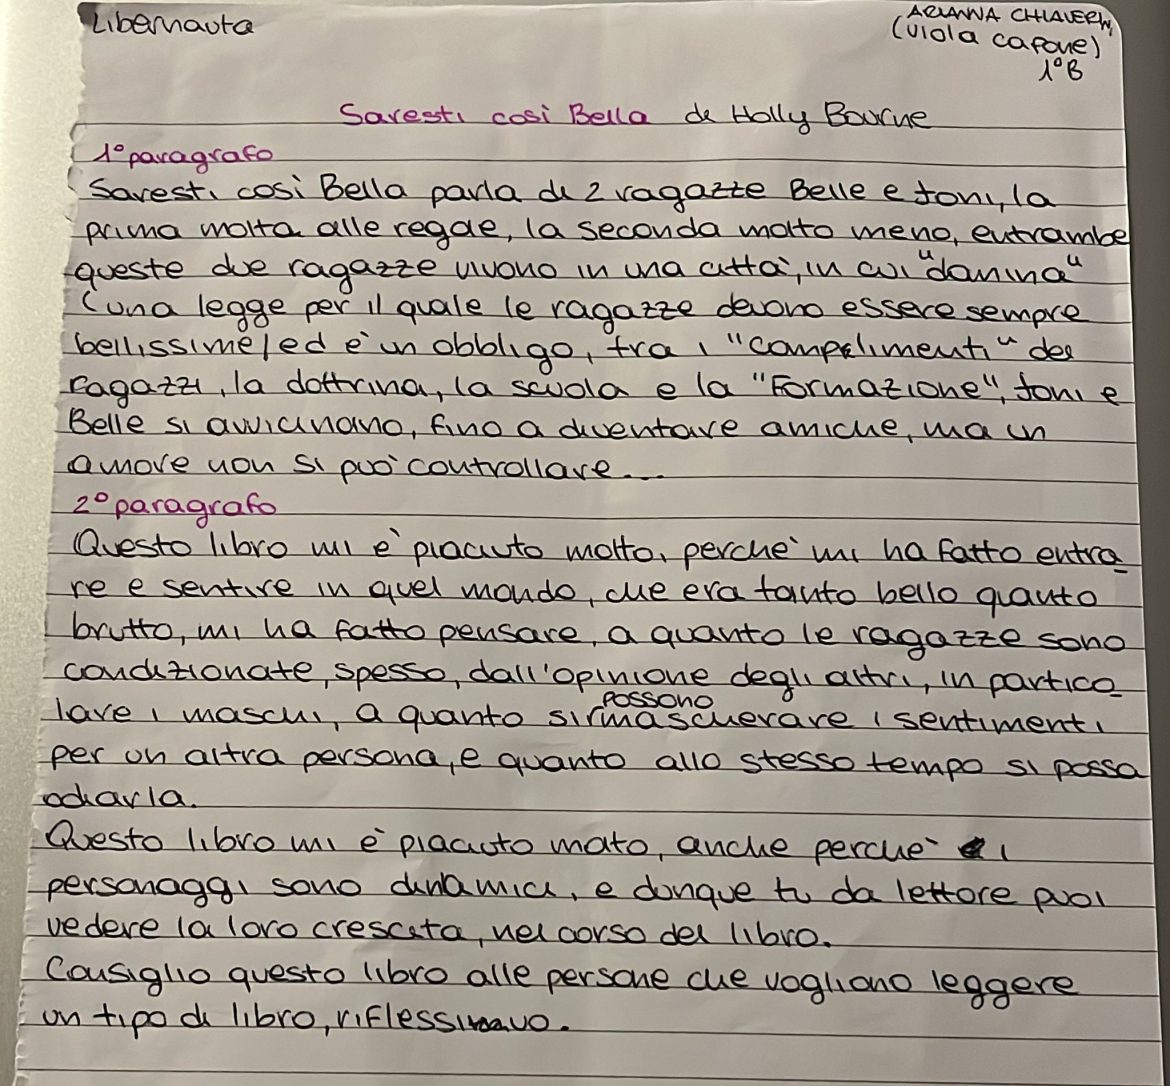 Libernauta
ARIANNA CHIAVERINI
(Viola Capone)
1°B
Saresti così Bella di Holly Bourne
1° paragrafo
Saresti così Bella parla di 2 ragazze Belle e Joni, la
prima molta alle regole, la seconda molto meno, entrambe
queste due ragazze vivono in una città, in cui "domina"
(una legge per il quale le ragazze devono essere sempre
bellissime) ed è un obbligo, tra i "complimenti" dei
ragazzi, la dottrina, la scuola e la "Formazione", Joni e
Belle si avvicinano, fino a diventare amiche, ma un
amore non si può controllare...
2° paragrafo
Questo libro mi è piaciuto molto, perchè mi ha fatto entra
re e sentire in quel mondo, che era tanto bello quanto
brutto, mi ha fatto pensare, a quanto le ragazze sono
condizionate, spesso, dall'opinione degli altri, in partico
lare i maschi, a quanto si possono mascherare i sentimenti
per un altra persona, e quanto allo stesso tempo si possa
odiarla.
Questo libro mi è piaciuto molto, anche perchè i
personaggi sono dinamici, e dunque tu da lettore puoi
vedere la loro crescita, nel corso del libro.
Consiglio questo libro alle persone che vogliono leggere
un tipo di libro, riflessivo.